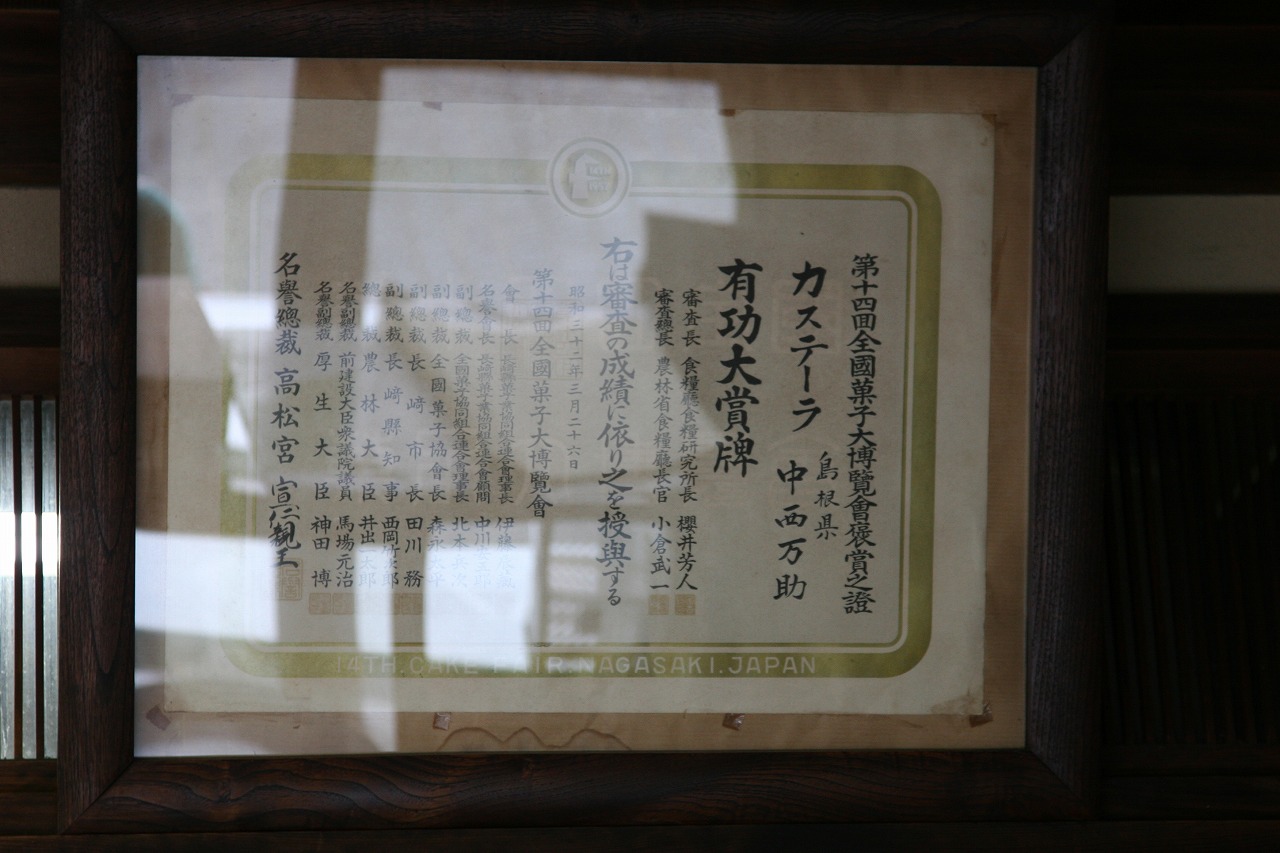 第十四回全國菓子大博覽會褒賞之證
カステーラ
島根県
中西万助
有功大賞牌
審査長 食糧廳食糧研究所長 櫻井芳人
審査總長 農林省食糧廳長官 小倉武一
右は審査の成績に依り之を授與する
昭和三十二年三月二十六日
第十四回全國菓子大博覽會
會長 長崎縣菓子工業協同組合連合會理事長 伊藤
名譽會長 長崎縣菓子工業協同組合連合會顧問 中川
副總裁 全國菓子協同組合連合會理事長 北本
副總裁 全國菓子協會長 森永太平
副總裁 長崎市長 田川務
副總裁 長崎縣知事 西岡竹次郎
總裁 農林大臣 井出一太郎
名譽副總裁 前建設大臣衆議院議員 馬場元治
名譽副總裁 厚生大臣 神田博
名譽總裁 高松宮 宣仁親王
14TH.CAKE FAIR.NAGASAKI.JAPAN